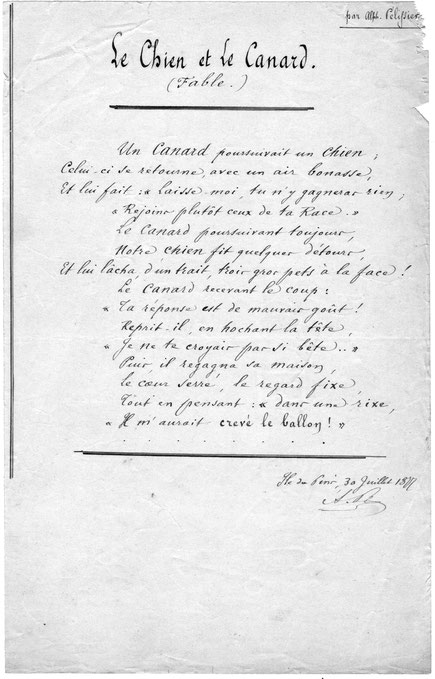 par Alph. Pelissier
Le Chien et le Canard.
(Fable.)
Un Canard poursuivait un chien ;
Celui-ci se retourne, avec un air bonasse,
Et lui fait : « Laisse-moi, tu n'y gagneras rien ;
« Rejoins plutôt ceux de ta Race. »
Le Canard poursuivant toujours,
Notre chien fit quelques détours,
Et lui lâcha, d'un trait, trois gros pets à la face !
Le Canard recevant le coup :
« Ta réponse est de mauvais goût !
Reprit-il, en hochant la tête,
« Je ne te croyais pas si bête.. »
Puis, il regagna sa maison,
Le cœur serré, le regard fixe,
Tout en pensant : « dans une rixe,
« Il m'aurait crevé le ballon ! »
Ile des Pins, 30 Juillet